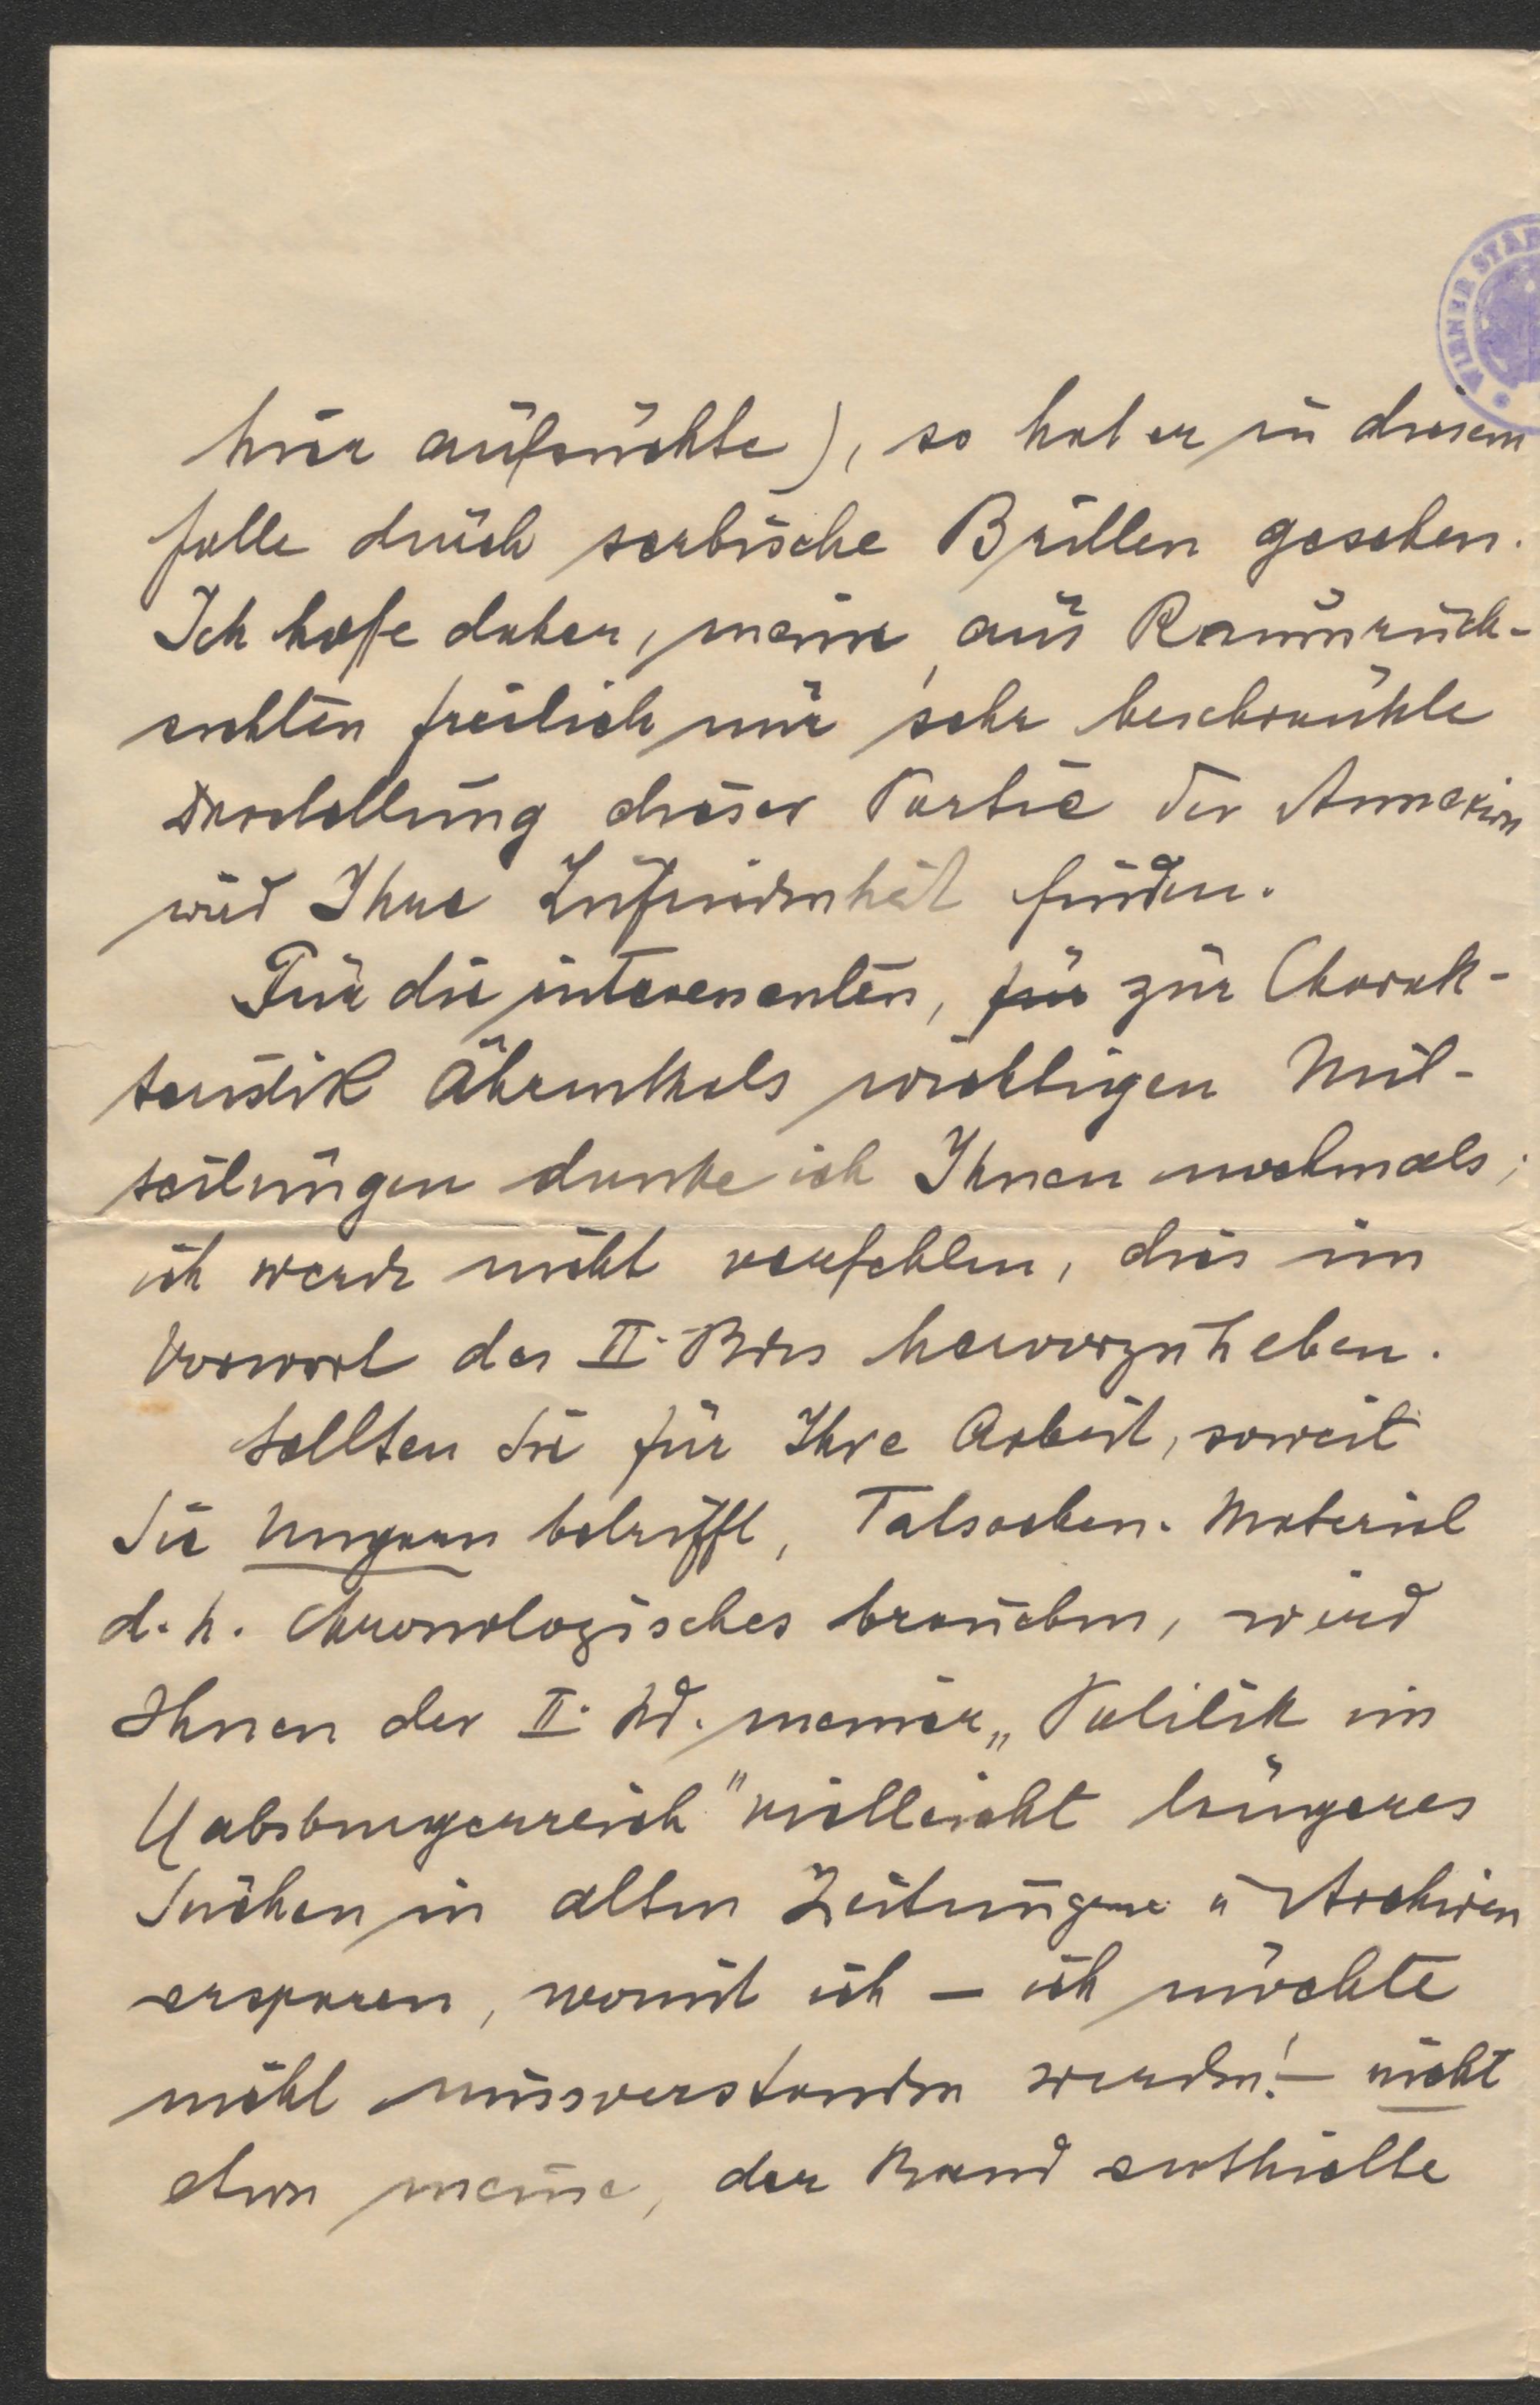 WIENER STAD
hier aufsuchte), so hat er in diesem
Falle durch serbische Brillen gesehen.
Ich hoffe daher, meine, aus Raumrück-
sichten freilich nur sehr beschränkte
Darstellung dieser Partie der Annexion
wird Ihre Zufriedenheit finden.
Für die interessanten, für zur Charak-
teristik Ährenthals wichtigen Mit-
teilungen danke ich Ihnen nochmals;
ich werde nicht verfehlen, dies im
Vorwort des II. Bdes hervorzuheben.
Sollten Sie für Ihre Arbeit, soweit
Sie Ungarn betrifft, Tatsachen-Material
d. h. Chronologisches brauchen, wird
Ihnen der II. Bd. meiner „Politik im
Habsburgerreich" vielleicht längeres
Suchen in alten Zeitungen u Archiven
ersparen, womit ich – ich möchte
nicht missverstanden werden! – nicht
etwa meine, der Band enthielte